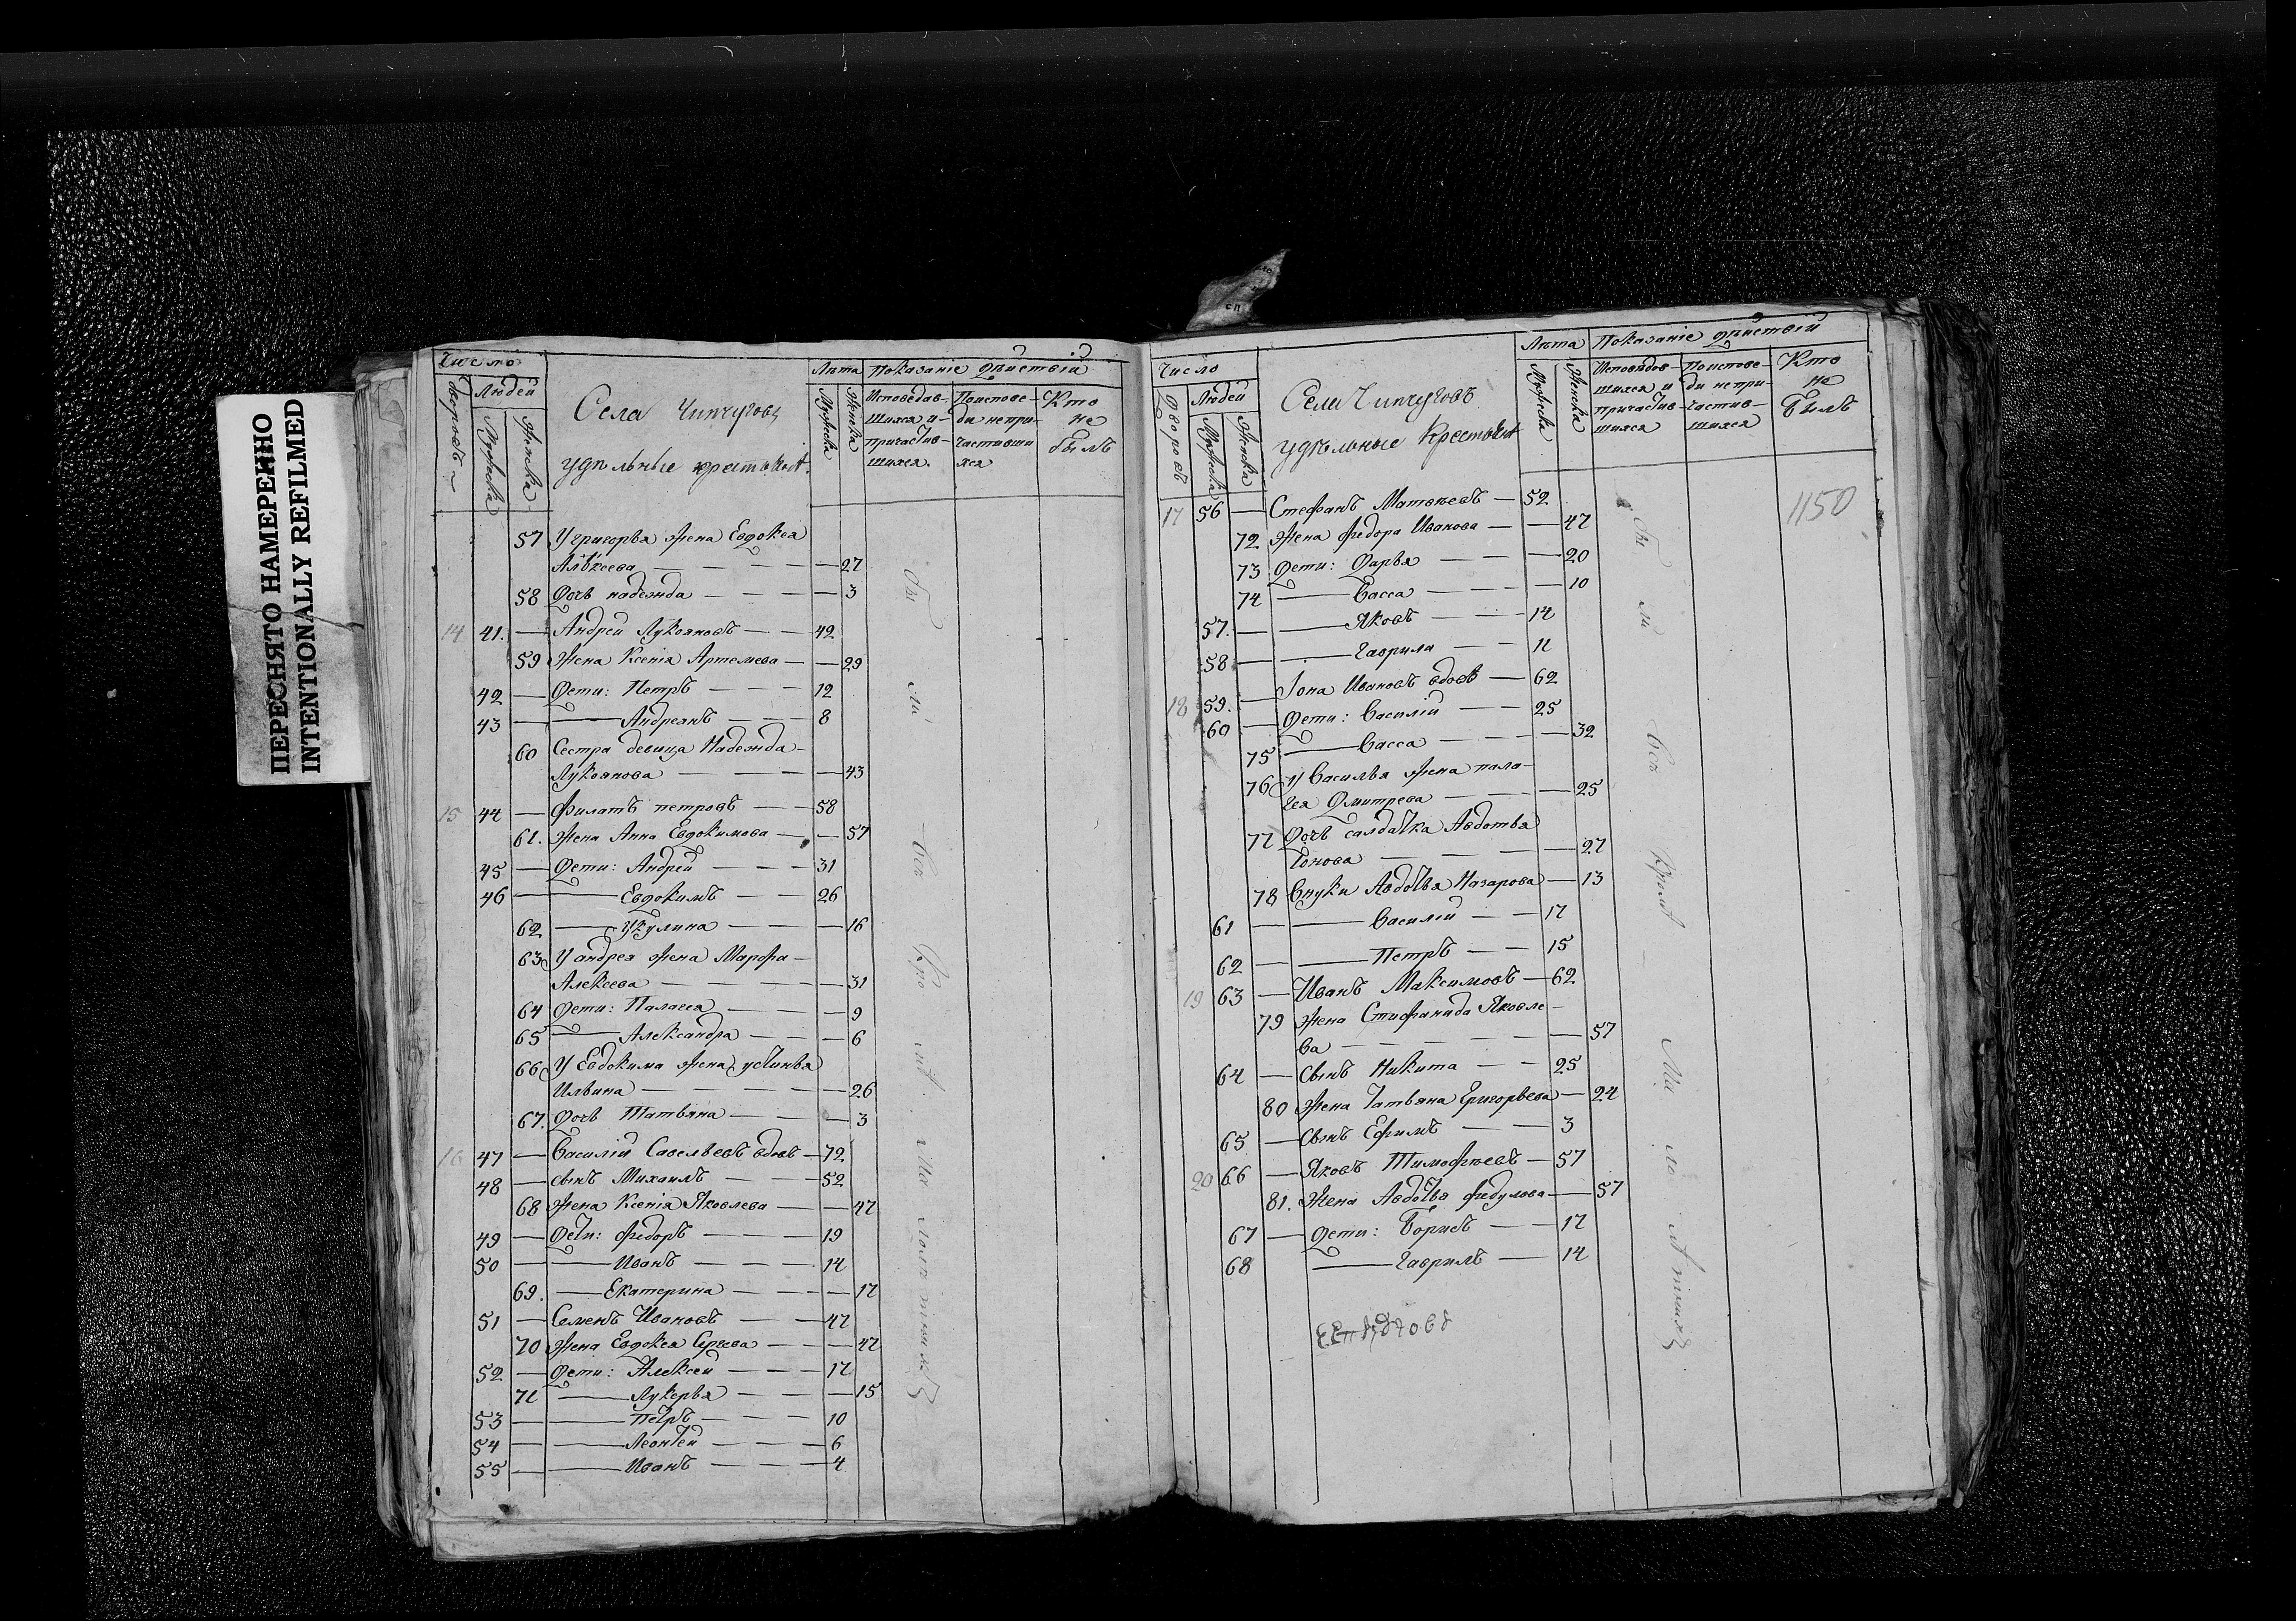 ПЕРЕСНЯТО НАМЕРЕННО
INTENTIONALLY REFILMED
Число
Дворовъ
Людей
Мужеска
Женска
Села Чипчугова
удѣльные крестьяня
Лѣта
Мужеска
Женска
Показаніе дѣйствій
Исповедав-
шихся и
причастив-
шихся.
По испове-
ди непри-
частивши
хся
Кто
не
былъ
57 У григорья жена Евдокея
Алѣксеева — 27
58 Дочь надежда — 3
14 41. — Андрей Лукояновъ — 42
59 Жена Ксенія Артемева — 29
42 — Дети: Петръ — 12
43 — Андреянъ — 8
60 Сестра девица Надежда
Лукоянова — 43
15 44 — Филатъ петровъ — 58
61. Жена Анна Евдокимова — 57
45 — Дети: Андрей — 31
46 — Евдокимъ — 26
62 — Укулина — 16
63 У андрея жена Марфа
Алексеева — 31
64 Дети: Палагея — 9
65 — Александра — 6
66 У Евдокима жена устинья
Ильина — 26
67. Дочь Татьяна — 3
16 47 — Василій Савельевъ вдовъ — 72
48 — сынъ Михаилъ — 52
68 Жена Ксенія Яковлева — 47
49 — Дети: Федоръ — 19
50 — Иванъ — 14
69. — Екатерина — 17
51 — Семенъ Ивановъ — 47
70 Жена Евдокея Сергева — 47
52 — Дети: Алексей — 17
71 — Лукерья — 15
53 — Петръ — 10
54 — Леонтей — 6
55 — Иванъ — 4
Бы ли
все Кро мѣ Ма лолѣтныхъ
Число
Дворовъ
Людей
Мужеска
Женска
Села Чипчуговъ
удѣльные Крестьяня
Лѣта
Мужеска
Женска
Показаніе дѣйствій
Исповѣдов-
шихся и
причастив-
шихся
По испове-
ди непри-
частив-
шихся
Кто
не
Былъ
1150
17 56 — Стефанъ Матвѣевъ — 52
72 Жена Федора Иванова — 47
73 Дети: Дарья — 20
74 — Васса — 10
57. — Яковъ — 14
58 — Гаврила — 11
18 59. — Іона Ивановъ вдовъ — 62
60 — Дети: Василій — 25
75 — Васса — 32
76 У Василья жена пала-
гея Дмитрева — 25
77 Дочь салдатка Авдотья
Іонова — 27
78 Внуки Авдотья Назарова — 13
61 — Василій — 17
62 — Петръ — 15
19 63 — Иванъ Максимовъ — 62
79 Жена Стифанида Яковле-
ва — 57
64 — Сынъ Никита — 25
80 Жена Татьяна Григорьева — 24
65 — Сынъ Ефимъ — 3
20 66 — Яковъ Тимофеевъ — 57
81. Жена Авдотья Федулова — 57
67 — Дети: Борисъ — 17
68 — Гаврилъ — 14
Бы ли все Кромѣ Ма ло лѣтныхъ